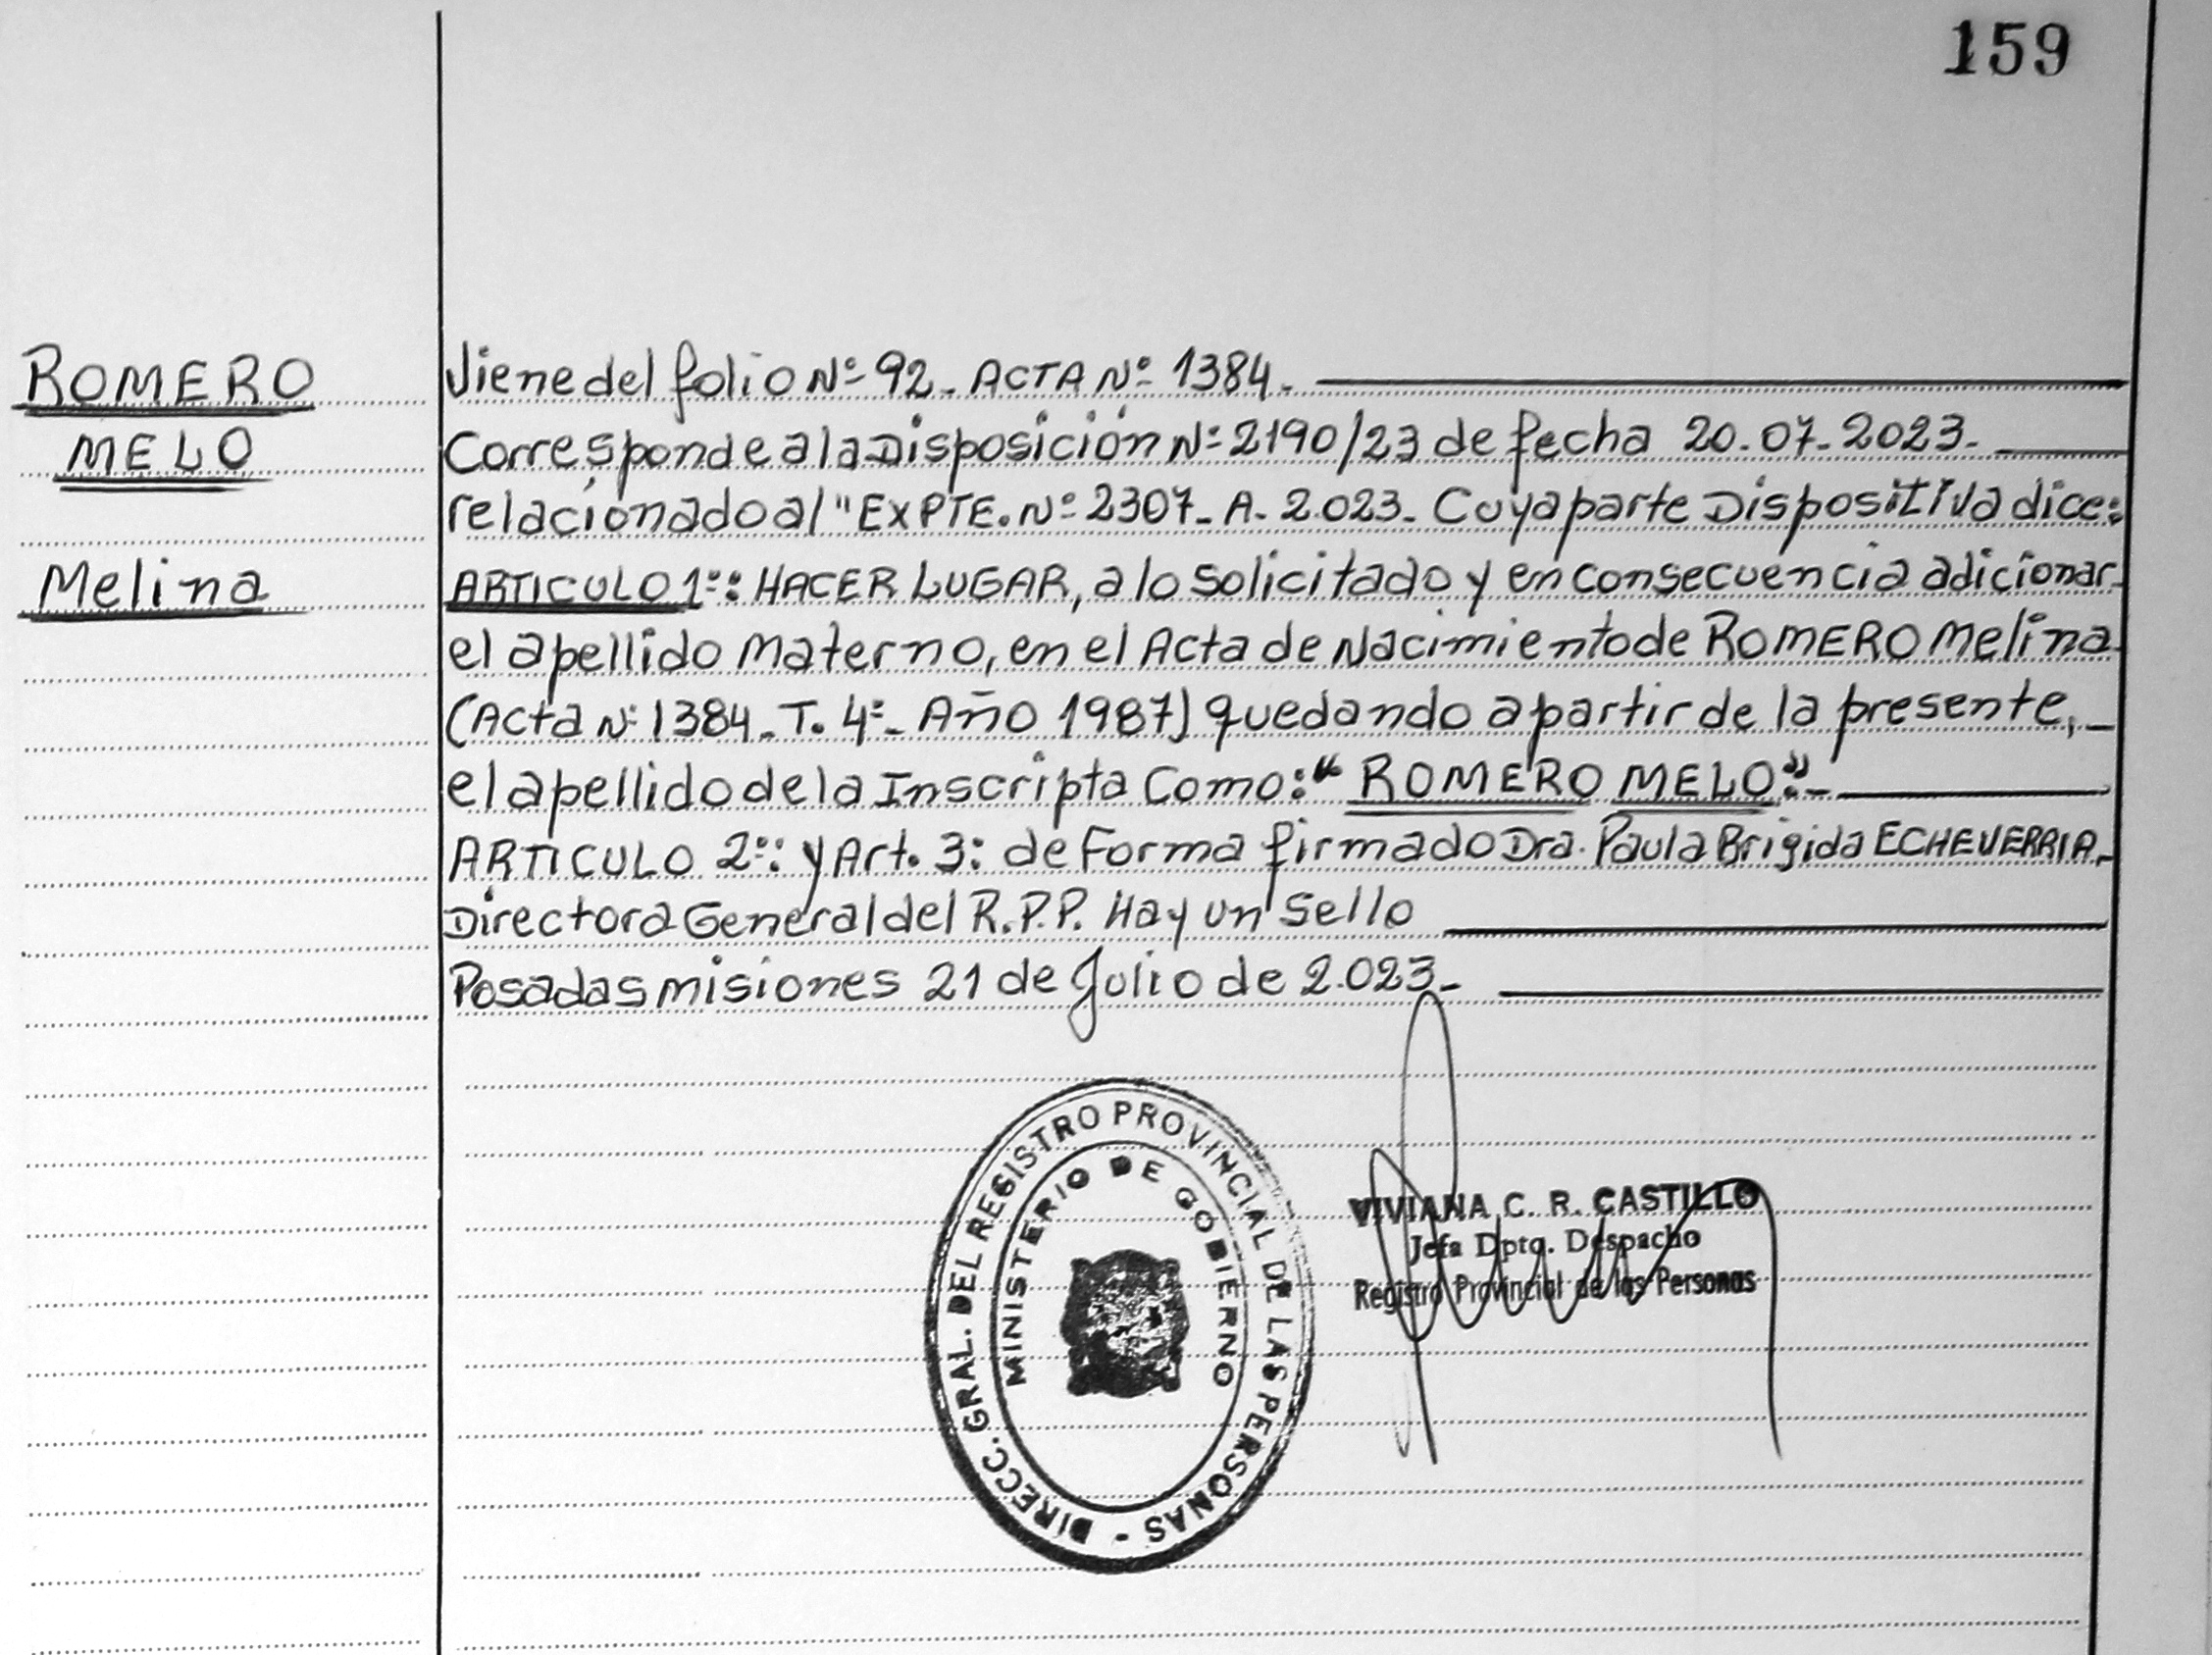 159
ROMERO
MELO
Melina
Viene del folio Nº 92_ ACTA Nº 1384_
Corresponde a la Disposición Nº 2190/23 de fecha 20.07.2023._
relacionado al "EXPTE. Nº 2307_A_2.023_ Cuya parte Dispositiva dice:
ARTICULO 1º: HACER LUGAR, a lo solicitado y en consecuencia adicionar
el apellido Materno, en el Acta de Nacimiento de ROMERO Melina
(Acta Nº 1384_T. 4º_ Año 1987) quedando a partir de la presente,_
el apellido de la Inscripta Como: "ROMERO MELO"._
ARTICULO 2º: y Art. 3: de Forma firmado Dra. Paula Brigida ECHEVERRIA_
Directora General del R.P.P. Hay un Sello
Posadas misiones 21 de Julio de 2.023_
DIRECC. GRAL. DEL REGISTRO PROVINCIAL DE LAS PERSONAS -
MINISTERIO DE GOBIERNO
VIVIANA C. R. CASTILLO
Jefa Dpto. Despacho
Registro Provincial de las Personas